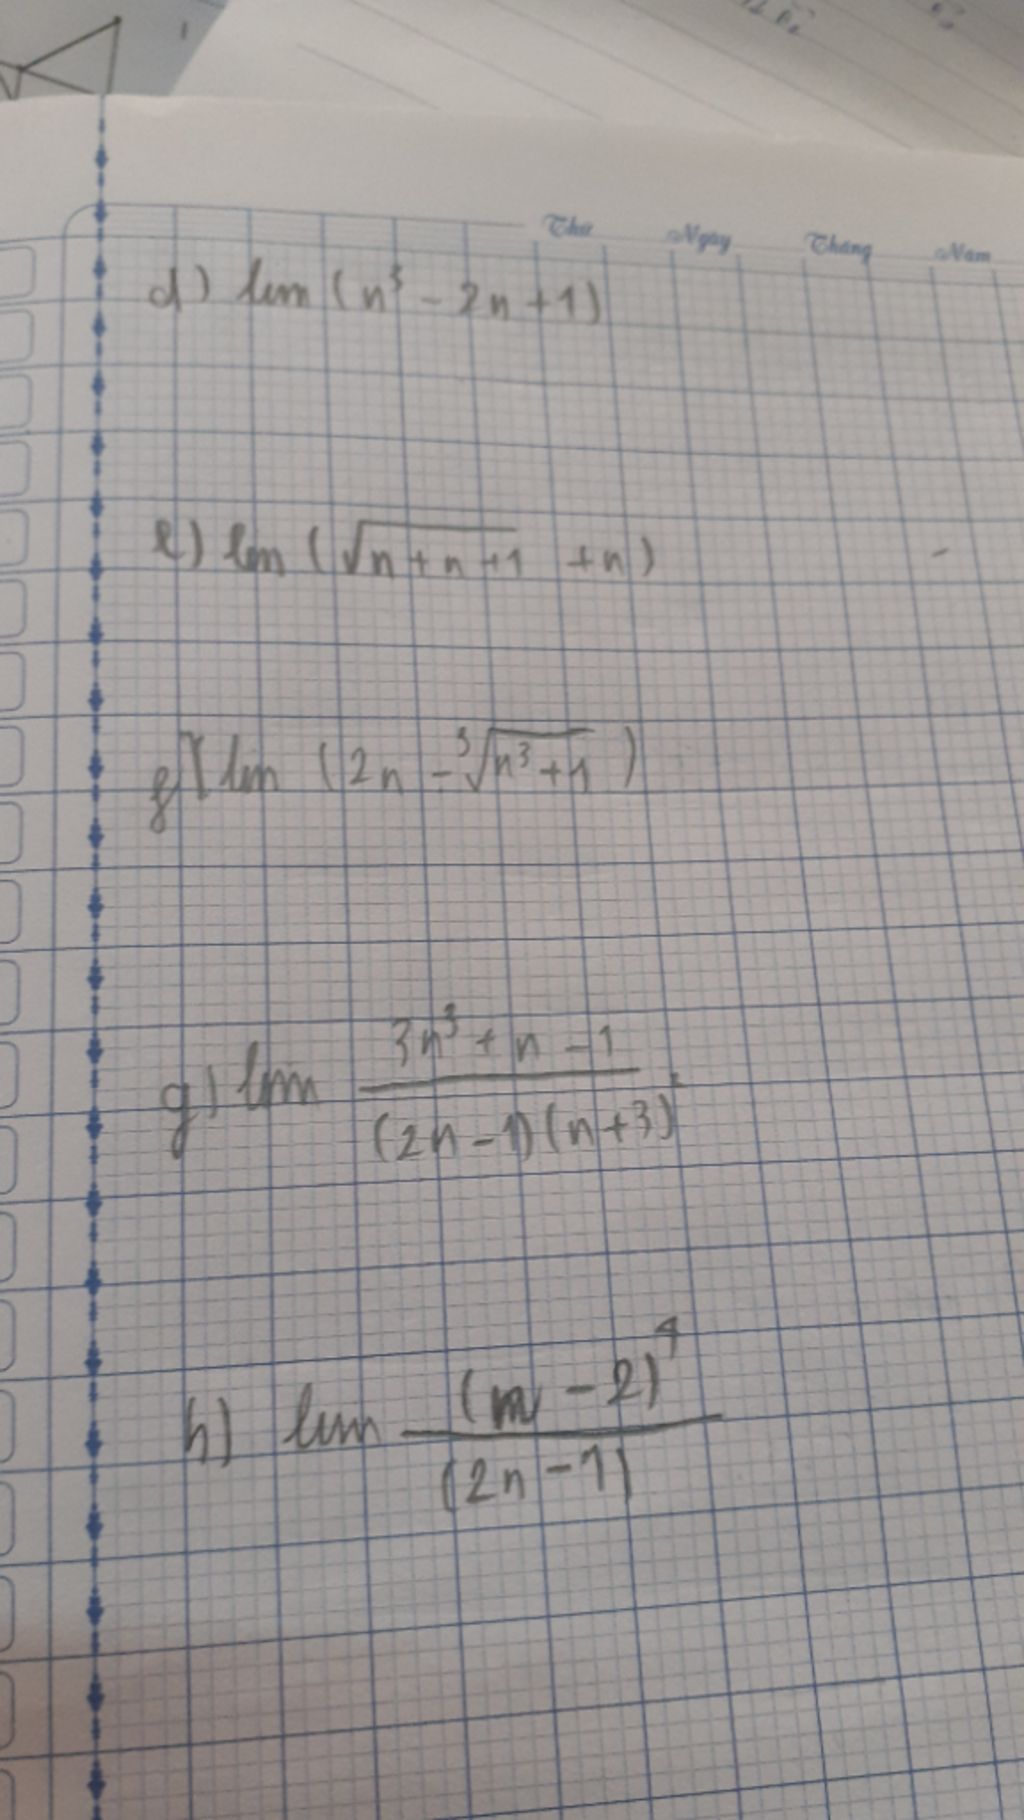 Thứ Ngày Tháng Năm
d) lim (n³ - 2n + 1)
e) lim (√(n + n + 1) + n)
f) lim (2n - ³√(n³ + 1))
g) lim (3n³ + n - 1) / ((2n - 1)(n + 3))
h) lim (n - 2)⁴ / (2n - 1)